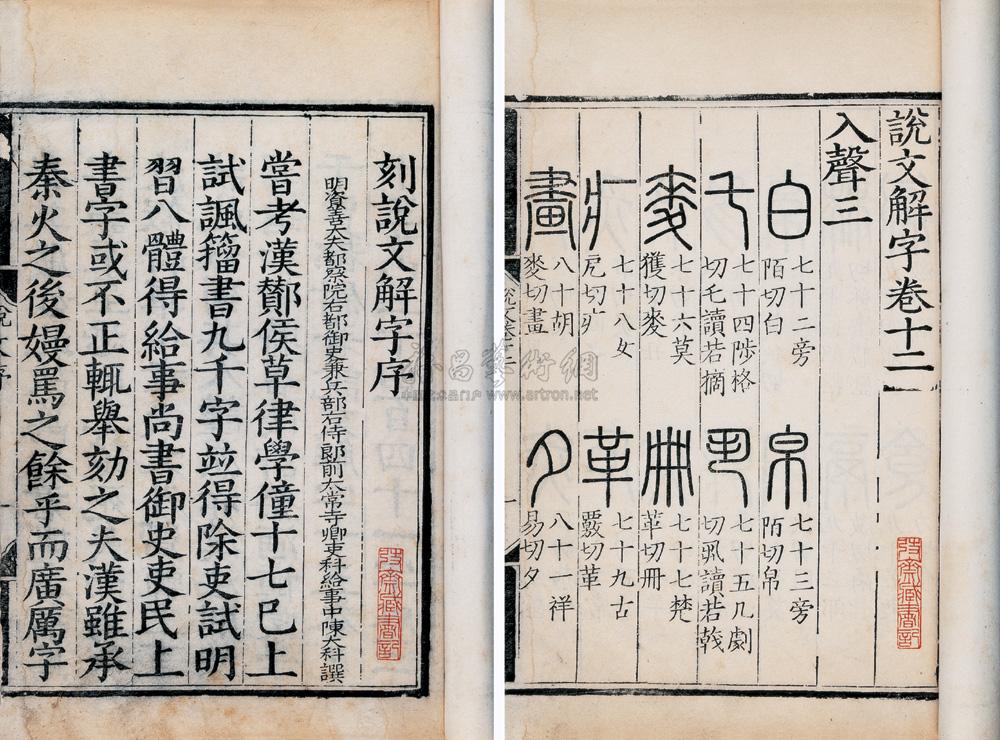 刻說文解字序
明資善大夫都察院右都御史兼兵部右侍郎前太常寺卿吏科給事中陳大科譔
嘗考漢酇侯草律學僮十七巳上
試諷籀書九千字竝得除吏試明
習八體得給事尚書御史吏民上
書字或不正輒舉劾之夫漢雖承
秦火之後嫚罵之餘乎而廣厲字
說文解字卷十二
入聲三
白 七十二旁陌切白 帛 七十三旁陌切帛
乇 七十四陟格切乇讀若摘 丮 七十五几劇切丮讀若戟
麥 七十六莫獲切麥 冊 七十七楚革切冊
疒 七十八女戹切疒 革 七十九古覈切革
畫 八十胡麥切畫 夕 八十一祥易切夕
昌藝術網
www.artron.net